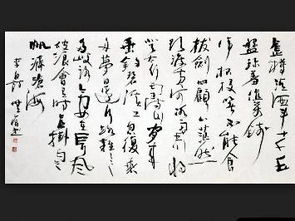 金樽清酒斗十千玉
盘珍羞直万钱
停杯投箸不能食
拔剑四顾心茫然
欲渡黄河冰塞川将
登太行雪满山闲来
垂钓碧溪上忽复乘
舟梦日边行路难
多歧路今安在长风
破浪会有时直挂云
帆济沧海
李白诗